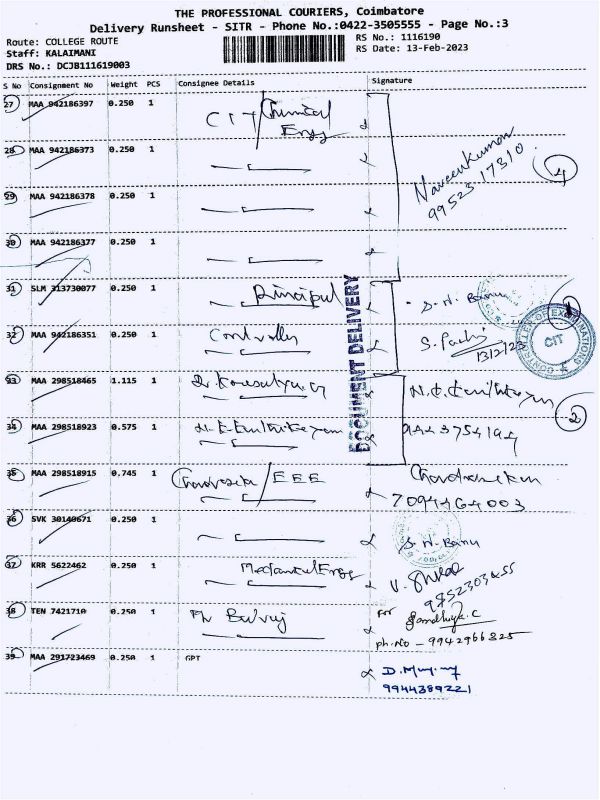 THE PROFESSIONAL COURIERS, Coimbatore
Delivery Runsheet - SITR - Phone No.:0422-3505555 - Page No.:3
Route: COLLEGE ROUTE
RS No.: 1116190
Staff: KALAIMANI
RS Date: 13-Feb-2023
DRS No.: DCJB111619003
S No Consignment No Weight PCS Consignee Details Signature
27 MAA 942186397 0.250 1 CIT/Chemical
Engg
28 MAA 942186373 0.250 1
Naveen Kumar
99523 17310
4
29 MAA 942186378 0.250 1
30 MAA 942186377 0.250 1
31 SLM 313730077 0.250 1 Principal
32 MAA 942186351 0.250 1 Controller
13/2/23
CONTROLLER OF EXAMINATIONS
CIT
DOCUMENT DELIVERY
33 MAA 298518465 1.115 1
34 MAA 298518923 0.575 1
9443754194
2
35 MAA 298518915 0.745 1 Chandrasekar/EEE Chandrasekar
7094464003
36 SVK 30140671 0.250 1 S. N. Banu
37 KRR 5622462 0.250 1 Mechanical Engg
38 TEN 7421710 0.250 1 For Sandhiya.C
ph.No - 9942966325
39 MAA 291723469 0.250 1 GPT
9944389221